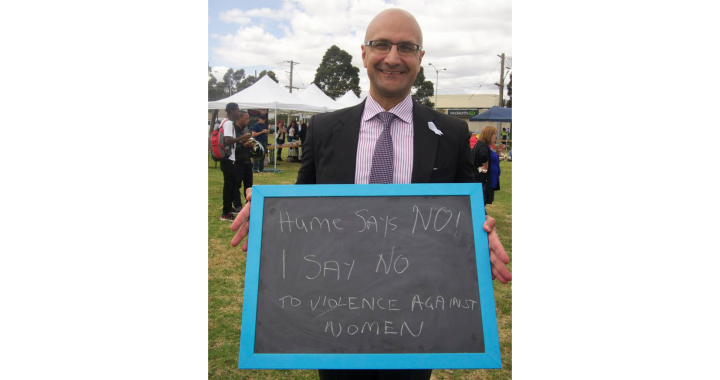 HUME SAYS NO!
I SAY NO
TO VIOLENCE AGAINST
WOMEN